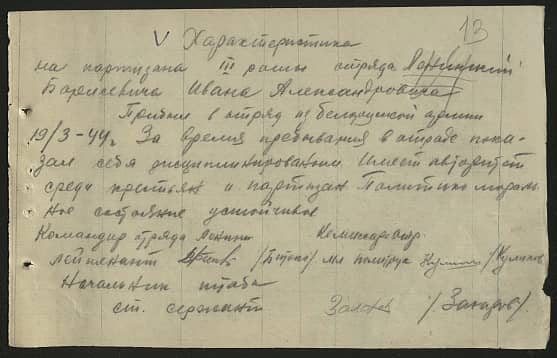 13
V Характеристика
на партизана III роты отряда
Борисевича Ивана Александровича
Прибыл в отряд из белпольской армии
19/3-44г. За время пребывания в отряде пока-
зал себя дисциплинированным. Имеет авторитет
среди крестьян и партизан Политико мораль
ное состояние устойчивое
Командир отряда Комиссар отр.
лейтенант мл политрук /Куликов
Начальник штаба
ст. сержант /Захаров/